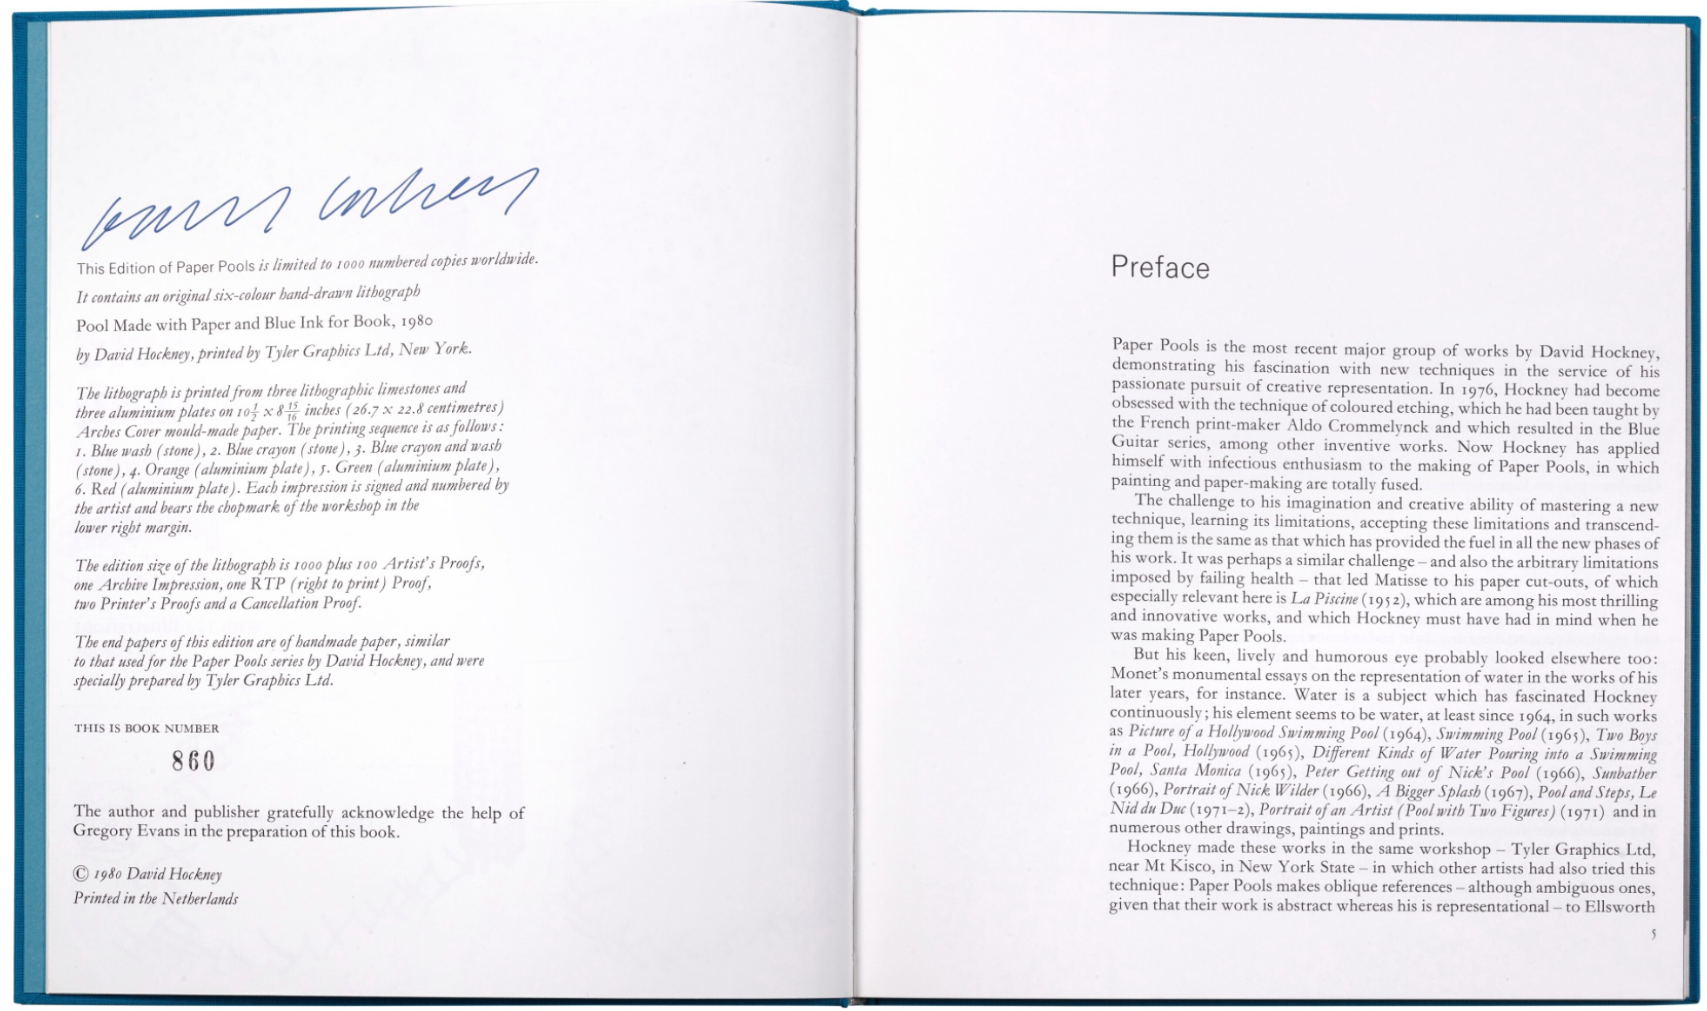 This Edition of Paper Pools is limited to 1000 numbered copies worldwide.
It contains an original six-colour hand-drawn lithograph
Pool Made with Paper and Blue Ink for Book, 1980
by David Hockney, printed by Tyler Graphics Ltd, New York.
The lithograph is printed from three lithographic limestones and
three aluminium plates on 10 1/2 x 8 15/16 inches (26.7 x 22.8 centimetres)
Arches Cover mould-made paper. The printing sequence is as follows:
1. Blue wash (stone), 2. Blue crayon (stone), 3. Blue crayon and wash
(stone), 4. Orange (aluminium plate), 5. Green (aluminium plate),
6. Red (aluminium plate). Each impression is signed and numbered by
the artist and bears the chopmark of the workshop in the
lower right margin.
The edition size of the lithograph is 1000 plus 100 Artist's Proofs,
one Archive Impression, one RTP (right to print) Proof,
two Printer's Proofs and a Cancellation Proof.
The end papers of this edition are of handmade paper, similar
to that used for the Paper Pools series by David Hockney, and were
specially prepared by Tyler Graphics Ltd.
THIS IS BOOK NUMBER
860
The author and publisher gratefully acknowledge the help of
Gregory Evans in the preparation of this book.
© 1980 David Hockney
Printed in the Netherlands
Preface
Paper Pools is the most recent major group of works by David Hockney,
demonstrating his fascination with new techniques in the service of his
passionate pursuit of creative representation. In 1976, Hockney had become
obsessed with the technique of coloured etching, which he had been taught by
the French print-maker Aldo Crommelynck and which resulted in the Blue
Guitar series, among other inventive works. Now Hockney has applied
himself with infectious enthusiasm to the making of Paper Pools, in which
painting and paper-making are totally fused.
The challenge to his imagination and creative ability of mastering a new
technique, learning its limitations, accepting these limitations and transcend-
ing them is the same as that which has provided the fuel in all the new phases of
his work. It was perhaps a similar challenge – and also the arbitrary limitations
imposed by failing health – that led Matisse to his paper cut-outs, of which
especially relevant here is La Piscine (1952), which are among his most thrilling
and innovative works, and which Hockney must have had in mind when he
was making Paper Pools.
But his keen, lively and humorous eye probably looked elsewhere too:
Monet's monumental essays on the representation of water in the works of his
later years, for instance. Water is a subject which has fascinated Hockney
continuously; his element seems to be water, at least since 1964, in such works
as Picture of a Hollywood Swimming Pool (1964), Swimming Pool (1965), Two Boys
in a Pool, Hollywood (1965), Different Kinds of Water Pouring into a Swimming
Pool, Santa Monica (1965), Peter Getting out of Nick's Pool (1966), Sunbather
(1966), Portrait of Nick Wilder (1966), A Bigger Splash (1967), Pool and Steps, Le
Nid du Duc (1971–2), Portrait of an Artist (Pool with Two Figures) (1971) and in
numerous other drawings, paintings and prints.
Hockney made these works in the same workshop – Tyler Graphics Ltd,
near Mt Kisco, in New York State – in which other artists had also tried this
technique: Paper Pools makes oblique references – although ambiguous ones,
given that their work is abstract whereas his is representational – to Ellsworth
5